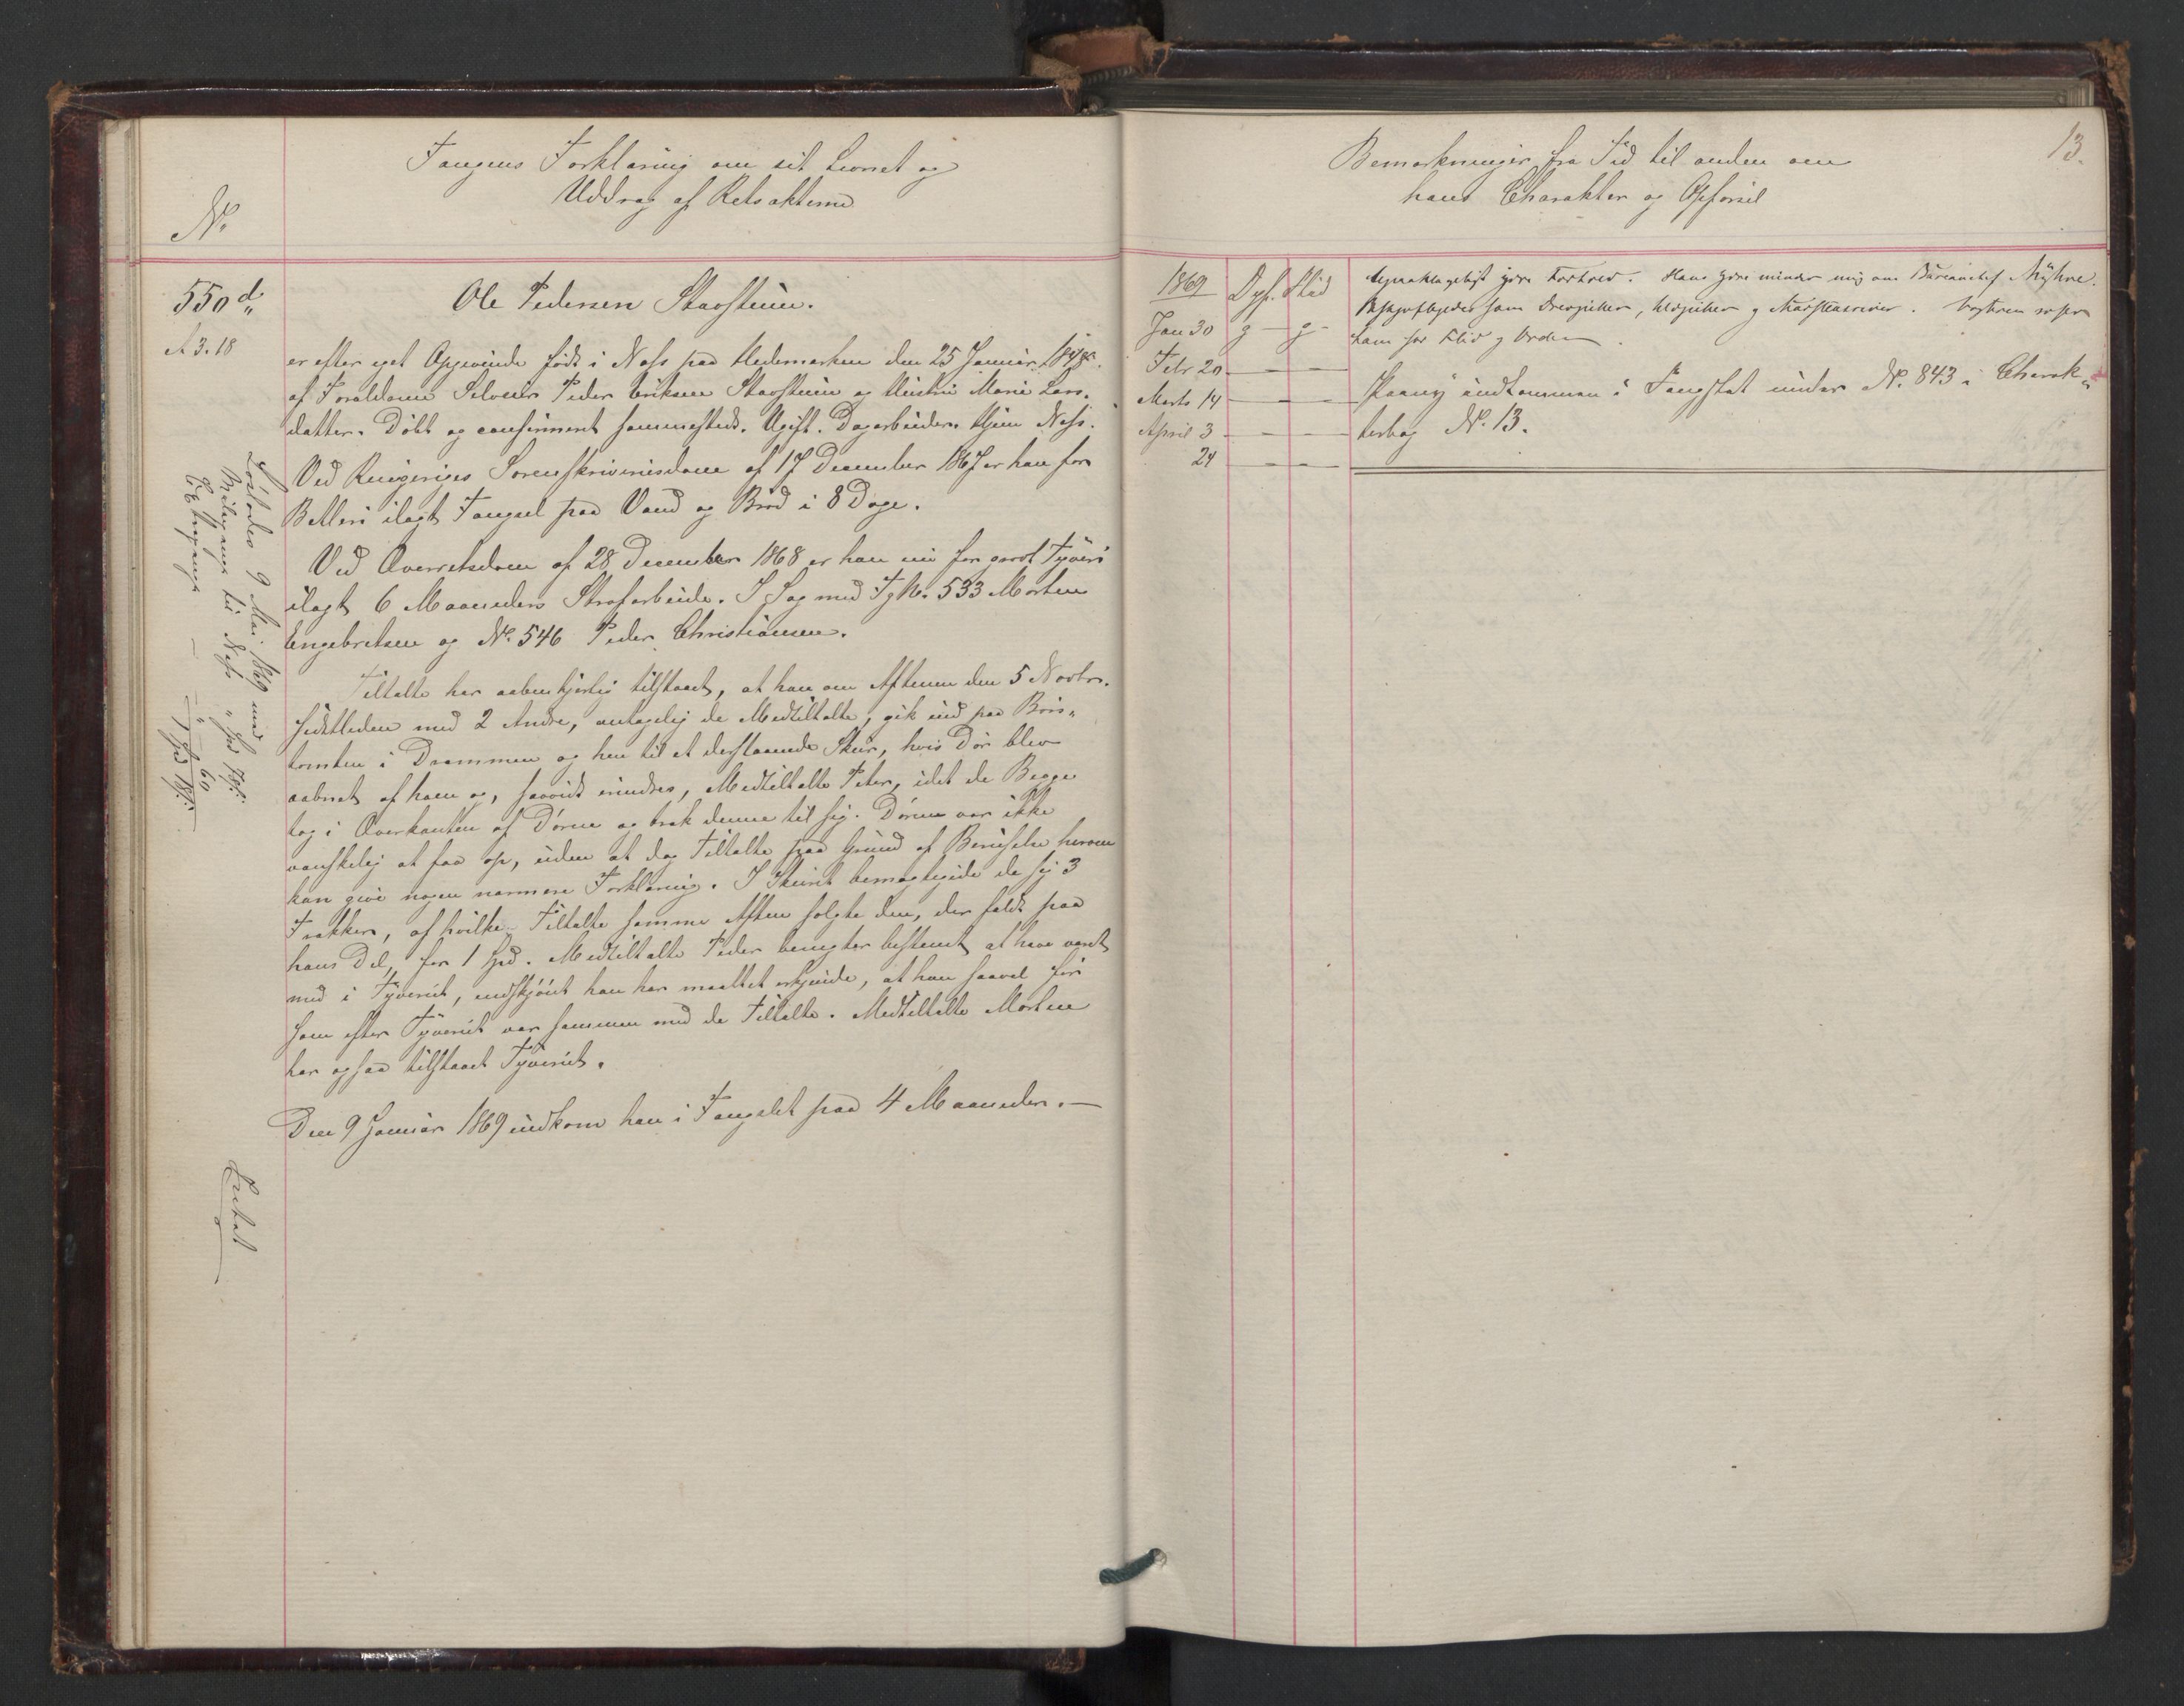 Fangens Forklaring om sit Levnet og
Uddrag af Retsakterne
No
550 d.
A 3. 18
Ole Pedersen Stavsteen.
er efter eget Opgivende født i Næss paa Hedemarken den 25 Januar
af Forældrene Selveier Peder Eriksen Stavsteen og Hustru Marie Lars-
datter. Døbt og confirmeret sammesteds. Ugift. Dagarbeider. Hjem Næss.
Ved Ringeriges Sorenskriveriesdom af 17 December 1867 er han for
Betleri ilagt Fængsel paa Vand og Brød i 8 Dage.
Ved Overretsdom af 28 December 1868 er han nu for grovt Tyveri
ilagt 6 Maaneders Strafarbeide. I Sag med Fg No. 533 Morten
Engebretsen og No. 546 Peder Christiansen.
Tiltalte har aabenhjertig tilstaaet, at han om Aftenen den 5 Novbr.
sidstleden med 2 Andre, antagelig de Medtiltalte, gik ind paa Børs-
tomten i Drammen og hen til et derstaaende Skur, hvis Dør blev
aabnet af ham og, saavidt erindres, Medtiltalte Peter, idet de Begge
tog i Overkanten af Døren og trak denne til sig. Døren var ikke
vanskelig at faa op, uden at dog Tiltalte paa Grund af Beruselse herom
kan give nogen nærmere Forklaring. I Skuret bemægtigede de sig 3
Frakker, af hvilke Tiltalte samme Aften solgte den, der faldt paa
hans Del, for 1 Spd. Medtiltalte Peder benegter bestemt at have været
med i Tyveriet, endskjøndt han har maattet erkjende, at han saavel før
som efter Tyveriet var sammen med de Tiltalte. Medtiltalte Morten
har ogsaa tilstaaet Tyveriet.
Den 9 Januar 1869 indkom han i Fængslet paa 4 Maaneder.—
Løslodes 9 Mai 1869 med
Reisepenge til Næss " Spd 78 ß:
Extrapenge — — " — 60
1 Spd 18 ß:
13.
Bemærkninger fra Tid til anden om
hans Charakter og Opførsel
1869 Opf. Flid
Jan 30 g — g —
Febr 20 — —
Marts 14 — —
April 3 — —
24 — —
ydre Hans ydre minder mig om Myhre.
som
ham for Flid og Orden.
Paany indkommen i Fangstat under No. 843 i Charak-
terbog No. 13.